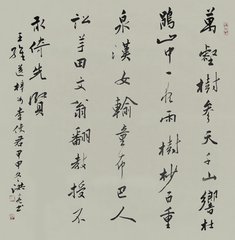 萬壑樹參天千山響杜
鵑山中一夜雨樹杪百重
泉漢女輸橦布巴人
訟芋田文翁翻教授不
敢倚先賢
王維送梓州李使君甲申冬洪